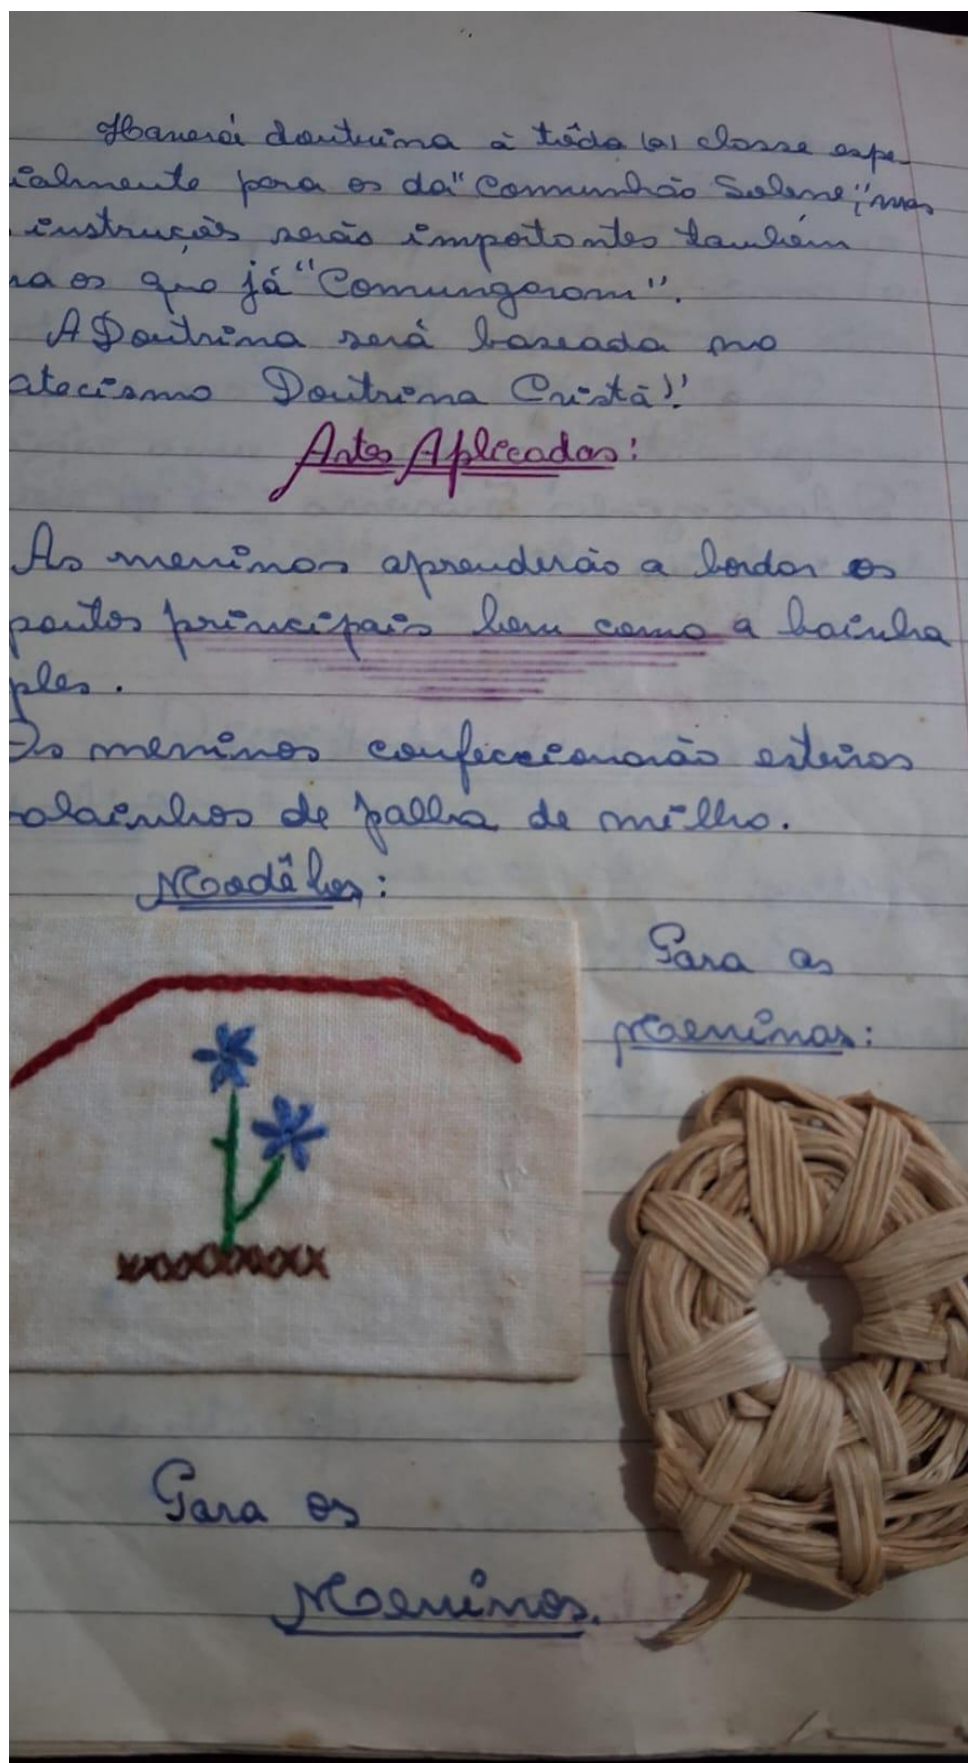 Haverá doutrina à tôda (a) classe espe-
ialmente para os da "Comunhão Solene", mas
instruções serão importantes também
ra os que já "Comungaram".
A Doutrina será baseada no
atecismo Doutrina Cristã!"
Artes Aplicadas:
As meninas aprenderão a bordar os
pontos principais bem como a bainha
ples.
Os meninos confeccionarão esteiras
balainhos de palha de milho.
Modêlos:
Para as
Meninas:
Para os
Meninos.